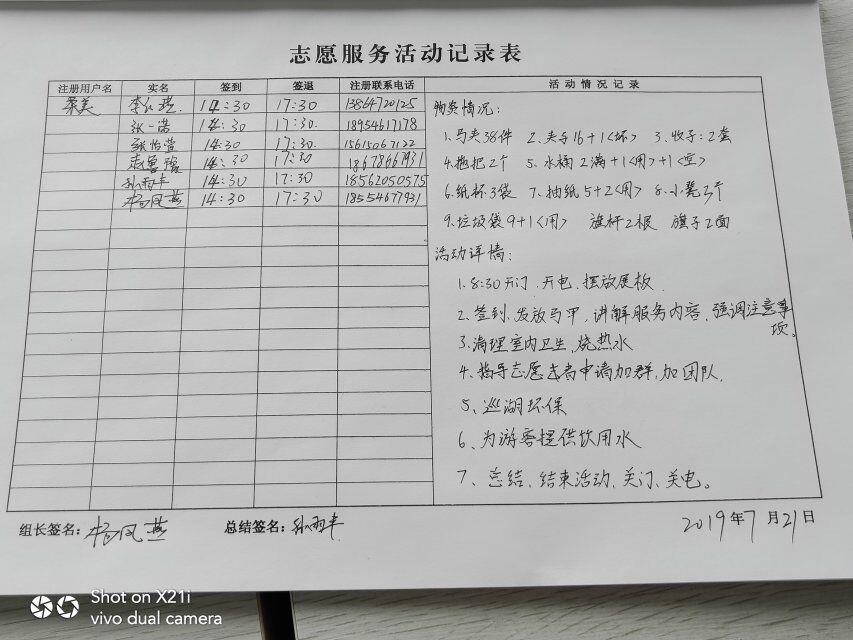 志愿服务活动记录表
注册用户名 实名 签到 签退 注册联系电话 活动情况记录
荣美 14:30 17:30 13864720125
张一诺 14:30 17:30. 18954617178
张怡萱 14:30 17:30. 15615067122
14:30 17:30 18678667931
孙雨丰 14:30 17:30 18562050575
杨凤燕 14:30 17:30 18554677931
物资情况:
1.马夹38件 2.夹子16+1<坏> 3.牧子:2套
4.拖把2个 5.水桶2满+1<用>+1<空>
6.纸杯3袋 7.抽纸5+2<用> 8.小凳3个
9.垃圾袋9+1<用> 旗杆2根 旗子2面
活动详情:
1.8:30开门.开电.摆放展板
2.签到.发放马甲.讲解服务内容.强调注意事
项。
3.清理室内卫生,烧热水
4.指导志愿者申请加群,加团队.
5、巡湖环保
6、为游客提供饮用水
7、总结、结束活动、关门、关电。
组长签名: 杨凤燕 总结签名: 孙雨丰
2019年7月21日
Shot on X21i
vivo dual camera